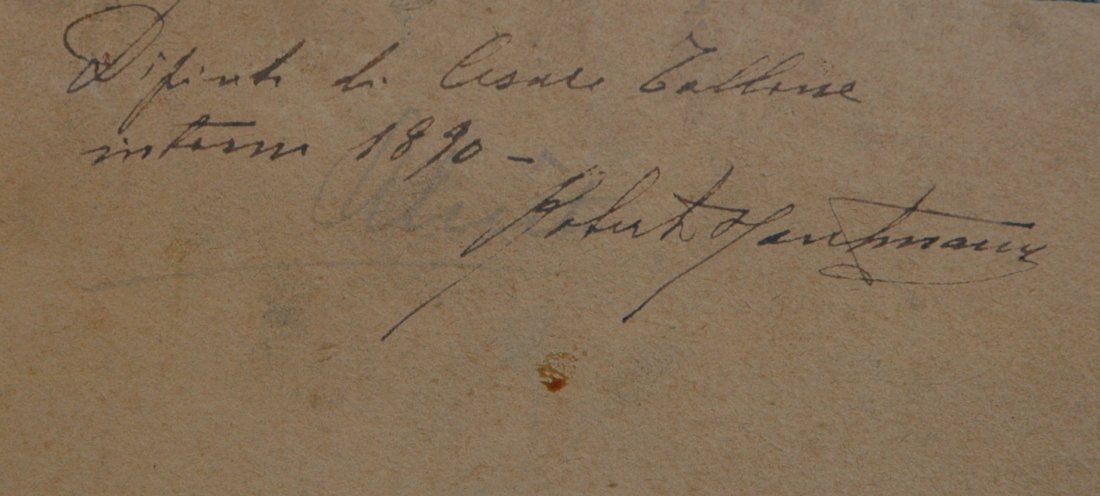 Dipinto di Cesare Tallone
interno 1890 -
Robert Hartmann